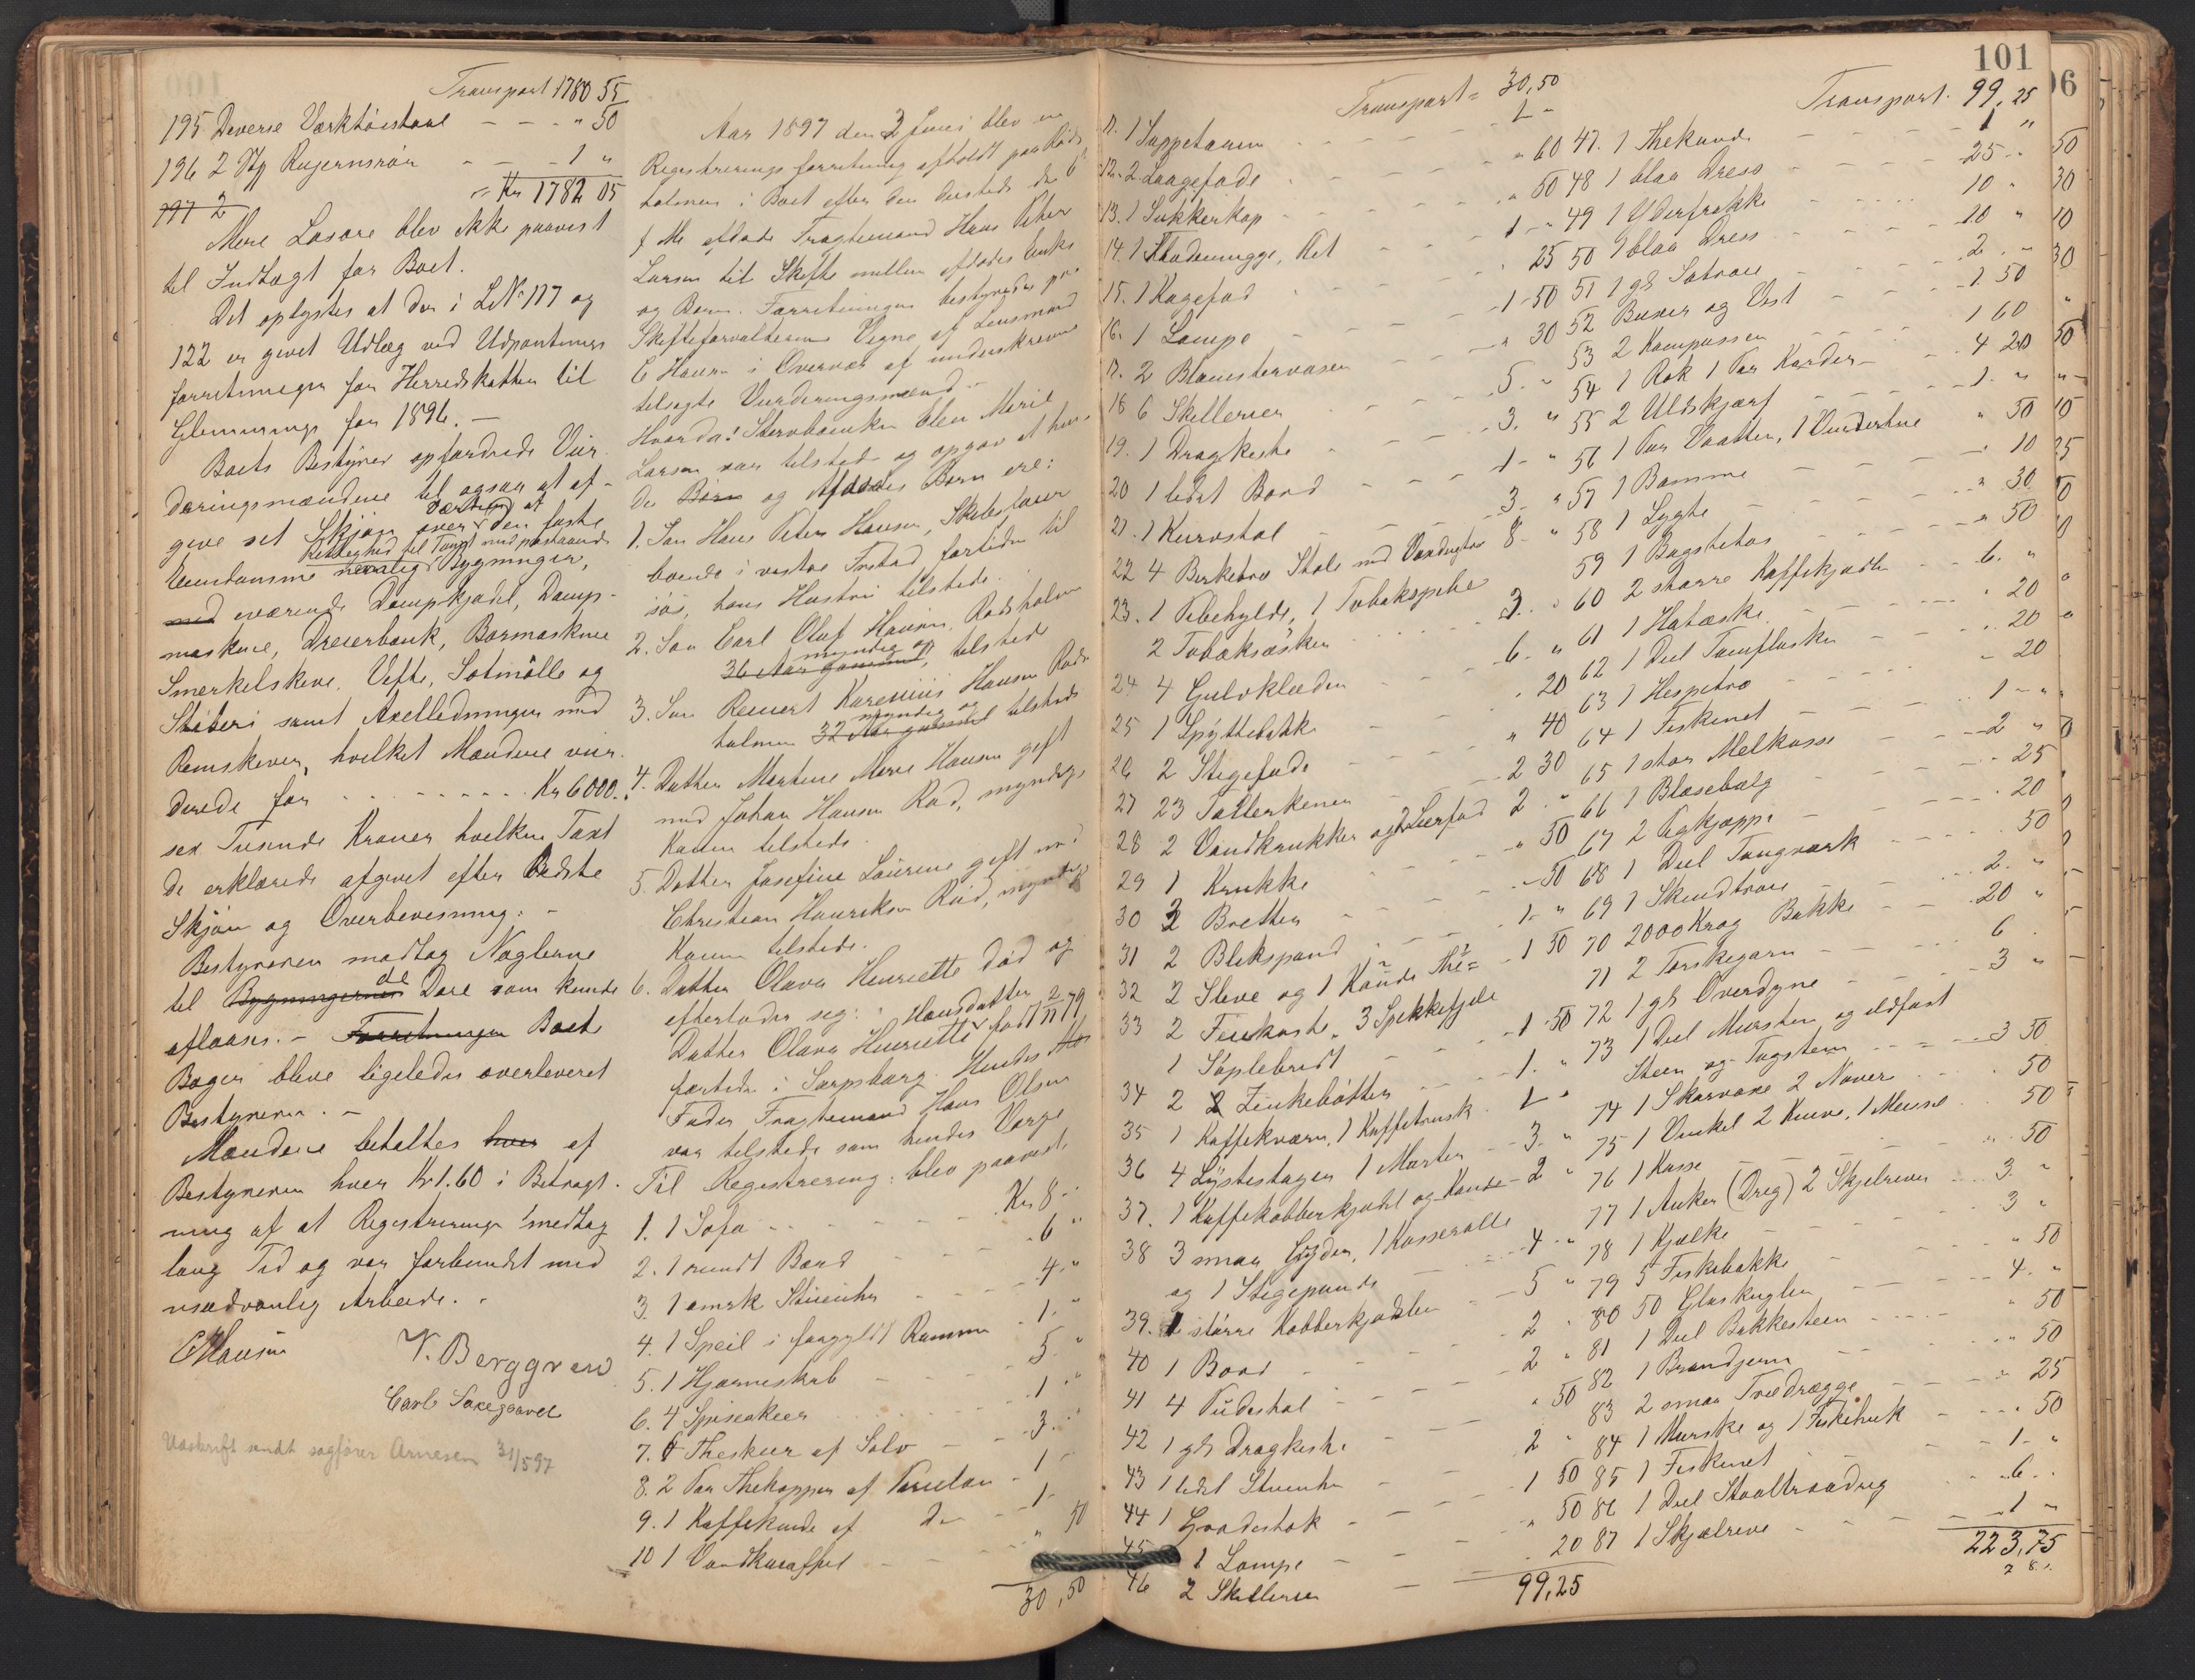 Transport 1780 55
195 Diverse Værktøistaal - - - " 50
196 2 Stk Rujernsrør - - - 1 "
= Kr 1782 05
197 2
Mere Løsøre blev ikke paavist
til Indtægt for Boet.
Det oplystes at der i L.No 117 og
122 er givet Udlæg ved Udpantnings
forretninger for Herredskatten til
Glemminge for 1896. -
Boets Bestyrer opfordrede Vur-
deringsmændene til ogsaa at af-
give set Skjøn over den faste
Værdien af
Rettighed til Tomt med paastaaende
Eiendomme Bygninger,
med værende Dampkjedel, Damp-
maskine, Dreierbænk, Bormaskine
Smerkelskive, Vifte, Sotmølle og
Støberi samt Axelledninger med
Remskiver, hvilket Mændene vur-
derede for - - - - - - - Kr 6000.
sex Tusinde Kroner hvilken Taxt
de erklærede afgivet efter bedste
Skjøn og Overbevisning: -
Bestyreren modtog Nøglerne
til Bygningernes de Døre som kunde
aflaases. - Forretningen Boets
Bøger bleve ligeledes overleveret
Bestyreren. -
Mændene betaltes hver af
Bestyreren hver Kr 1.60 i Betragt-
ning af at Registreringen medtog
lang Tid og var forbundet med
usædvanlig Arbeide. -
C Hansen
V. Berggren
Carl Saxegaard
Udskrift sendt sagfører Arnesen 31/5 97
Aar 1897 den 2 Juni blev en
Registrerings forretning afholdt paa Røds
holmen i Boet efter den dersteds den 6
f. M. afdøde Fragtemand Hans Peter
Larsen til Skifte mellem afdødes Enke
og Børn. Forretningen bestyredes paa
Skifteforvalterens Vegne af Lensmand
C Hansen i Overvær af underskrevne
tilsagte Vurderingsmænd -
Hvorda: Stervboenken Elen Marie
Larsen var tilstede og opgav at hen-
des Børn og Afdødes Børn ere:
1. Søn Hans Peter Hansen, Skibsfører
boende i vestre Frestad fortiden til
søs, hans Hustru tilstede.
2. Søn Carl Oluf Hansen, Rødsholmen
36 Aar gammel, myndig og tilstede
3. Søn Reinert Karenius Hansen Røds-
holmen 32 Aar gammel myndig og tilstede
4. Datter Martine Marie Hansen gift
med Johan Hansen Rød, myndig
Konen tilstede.
5. Datter Josefine Laurine gift med
Christian Henriksen Rød, myndig
Konen tilstede.
6. Datter Olava Henriette død og
efterlader sig:
Datter Olava Henriette Hansdatter født 2/11 79
fortiden i Sarpsborg. Hendes
Fader Fragtemand Hans Olsen
var tilstede som hendes Værge
Til Registrering: blev paavist:
1. 1 Sofa - - - - - - Kr 8 -
2. 1 rundt Bord - - - 6 "
3. 1 amrk Stueuhr - - - 4 "
4. 1 Speil i forgyldt Ramme - 1. "
5. 1 Hjørneskab - - - 5 "
6. 4 Spiseskeer - - - 1 "
7. 6 Theskeer af Sølv - - 3. "
8. 2 Par Thekopper af Porcelæn - 1 -
9. 1 Kaffekande af Do - 1 -
10 1 Vandkaraffel - - - " 50
30,50
101
Transport = 30,50
11. 1 Suppeterrin - - - 1 -
12. 2 Laagefade - - - " 60
13. 1 Sukkerkop - - - " 50
14. 1 Flødemugge, Æt - - - 1 - "
15. 1 Kagefad - - - " 25
16. 1 Lampe - - - 1 - 50
17. 2 Blomstervaser - - - " 30
18 6 Skillerier - - - 5. "
19. 1 Dragkiste - - - 3. "
20 1 lidet Bord - - - 1 - "
21. 1 Kurvstol - - - 3. "
22 4 Birketræ Stole med Voxdugtræk 8 - "
23. 1 Pibehylde, 1 Tobakspibe
2 Tobaksæsker - - - 3. "
24 4 Gulvklæder - - - 6 - "
25 1 Spyttebakke - - - " 20
26 2 Stegefade - - - " 40
27 23 Tallerkener - - - 2 30
28 2 Vandkrukker og 2 Leerfad 2 "
29 1 Krukke - - - " 50
30 2 Bretter - - - " 50
31 2 Blikspand - - - 1 - "
32 2 Sleve og 1 Kande The = 1 50
33 2 Feiekoste, 3 Spekkefjele
1 Søplebredt - - - 1 50
34 2 Zinkebøtter - - - 1. "
35 1 Kaffekværn, 1 Kaffetrusk - 1 "
36 4 Lysestager 1 Morter - 3. "
37. 1 Kaffekobberkjedel og Kande - 2 "
38 3 smaa Gryder, 1 Kasserolle
og 1 Stegepande - - - 4 "
39. 1 større Kobberkjedler - - 5 "
40 1 Bord - - - 2 "
41 4 Pudestol - - - 2 "
42 1 gl Dragkiste - - - " 50
43 1 lidet Stueuhr - - - 2 "
44 1 Grødestok - - - 1 50
45 1 Lampe - - - " 50
46 2 Skillerier - - - 20
99,25
Transport. 99,25
47. 1 Thekande - - - 1 "
48 1 blaa Dress - - - 25 - "
49 1 Yderfrakke - - - 10 "
50 1 blaa Dress - - - 10 "
51 1 gl Satroie - - - 2 - "
52 Buxer og Vest - - - 1. 50
53 2 Kompasser - - - 1 60
54 1 Rok 1 Par Karder - - - 4 20
55 2 Uldskjærf - - - 1. "
56 1 Par Vaatter, 1 Vindertue " 50
57 1 Bomme - - - " 10
58 1 Lygte - - - " 30
59 1 Bagstetøs - - - " 50
60 2 større Kaffekjedler - - 6. "
61 1 Hatæske - - - " 20
62 1 Deel Tomflasker - - - " 20
63 1 Hespetræ - - - " 20
64 1 Fiskenet - - - 1 - "
65 1 stor Melkasse - - - 2 "
66 1 Blæsebælg - - - " 25
67 2 Vegkjæppe - - - " 20
68 1 Deel Tougværk - - - 50
69 1 Skindtrøie - - - 2. "
70 2000 Krog Bakke - - 20 "
71 2 Torskegarn - - - 6 .
72 1 gl Overdyne - - - 3 "
73 1 Deel Mursten og ildfast
Steen og Tagsteen - - - 3 50
74 1 Skarvøxe 2 Naver - - - 50
75 1 Vinkel 2 Knive, 1 Meisel . 50
76 1 Kasse - - - " 50
77 1 Anker (Dreg) 2 Skjelriver - 3. "
78 1 Kjælke - - - 3 "
79 5 Fiskebakke - - - " 50
80 50 Glaskugler - - - 4. "
81 1 Deel Bakkesteen - - - " 50
82 1 Brændjern - - - " 50
83 2 smaa Trædrægge - - - " 25
84 1 Murske og 1 Fiskehuk - - - " 50
85 1 Fiskenet - - - 1 - "
86 1 Deel Staaltraadrig - - 6 .
87 1 Skjælrive - - - 1 "
223,75